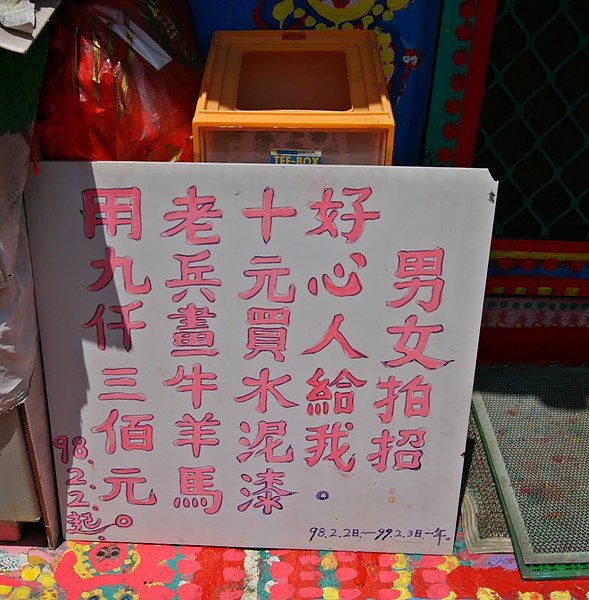 TEE-BOX
男女拍招
好心人給我。
十元買水泥漆
老兵畫牛羊馬
用九仟三佰元。
98.2.2.起
98.2.2日~99.2.3日一年。